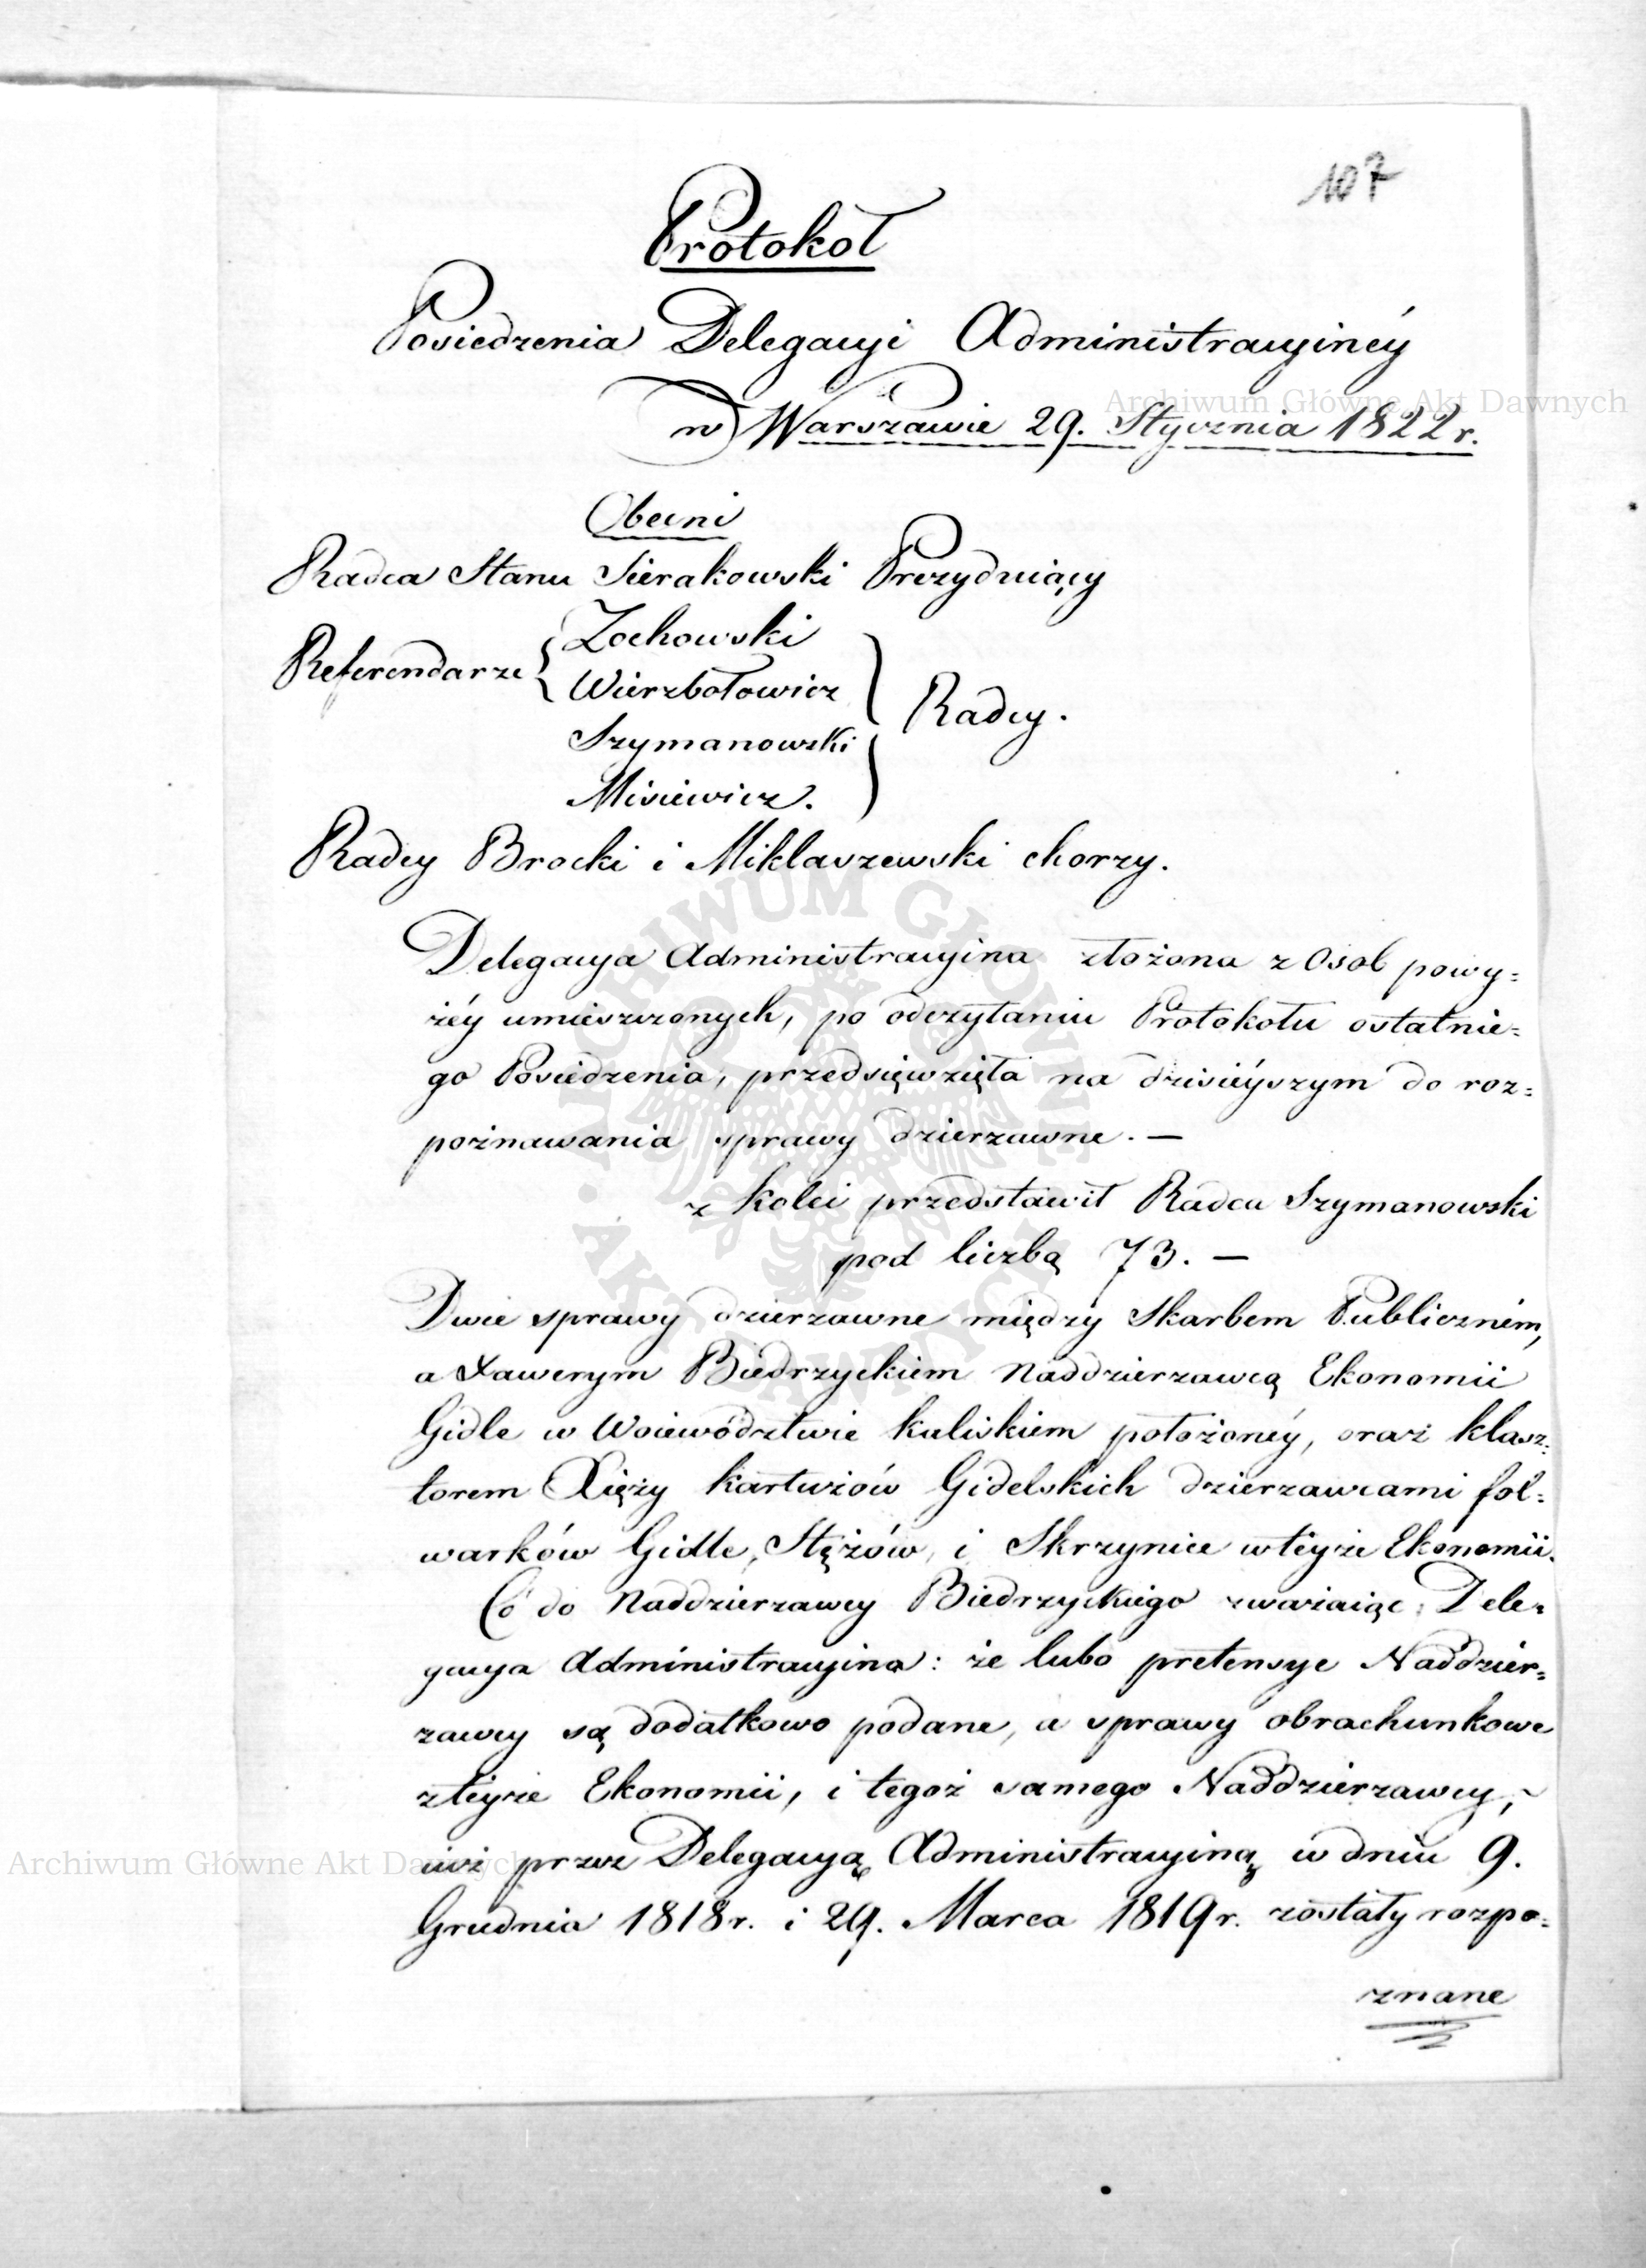 107
Protokoł
Posiedzenia Delegacyi Administracyinéy
w Warszawie 29. Stycznia 1822 r.
Obecni
Radca Stanu Sierakowski Prezyduiący
Referendarze { Zochowski
Wierzbołowicz
Radcy.
Szymanowski
Misiewicz.
Radcy Brocki i Miklaszewski chorzy.
Delegacya Administracyina złożona z Osob powy=
żéy umieszczonych, po odczytaniu Protokołu ostatnie=
go Posiedzenia, przedsięwzięła na dzisiéyszym do roz=
poznawania sprawy dzierzawne. —
z kolei przedstawił Radca Szymanowski
pod liczbą 73. —
Dwie sprawy dzierzawne między Skarbem Publiczném,
a Xawerym Biedrzyckiem Naddzierzawcą Ekonomii
Gidle w Woiewództwie kaliskiem położonéy, oraz klasz=
torem Xięży kartuzów Gidelskich dzierzawcami fol=
warków Gidle, Stężów, i Skrzynice wteyże Ekonomii.
Co do Naddzierzawcy Biedrzyckiego zważaiąc Dele=
gacya Administracyina: że lubo pretensye Naddzier=
zawcy są dodatkowo podane, a sprawy obrachunkowe
zteyże Ekonomii, i tegoż samego Naddzierzawcy,
iuż przez Delegacyą Administracyiną w dniu 9.
Grudnia 1818 r. i 29. Marca 1819 r. zostały rozpo=
znane
Archiwum Główne Akt Dawnych
Archiwum Główne Akt Dawnych
ARCHIWUM GŁÓWNE · AKT DAWNYCH ·